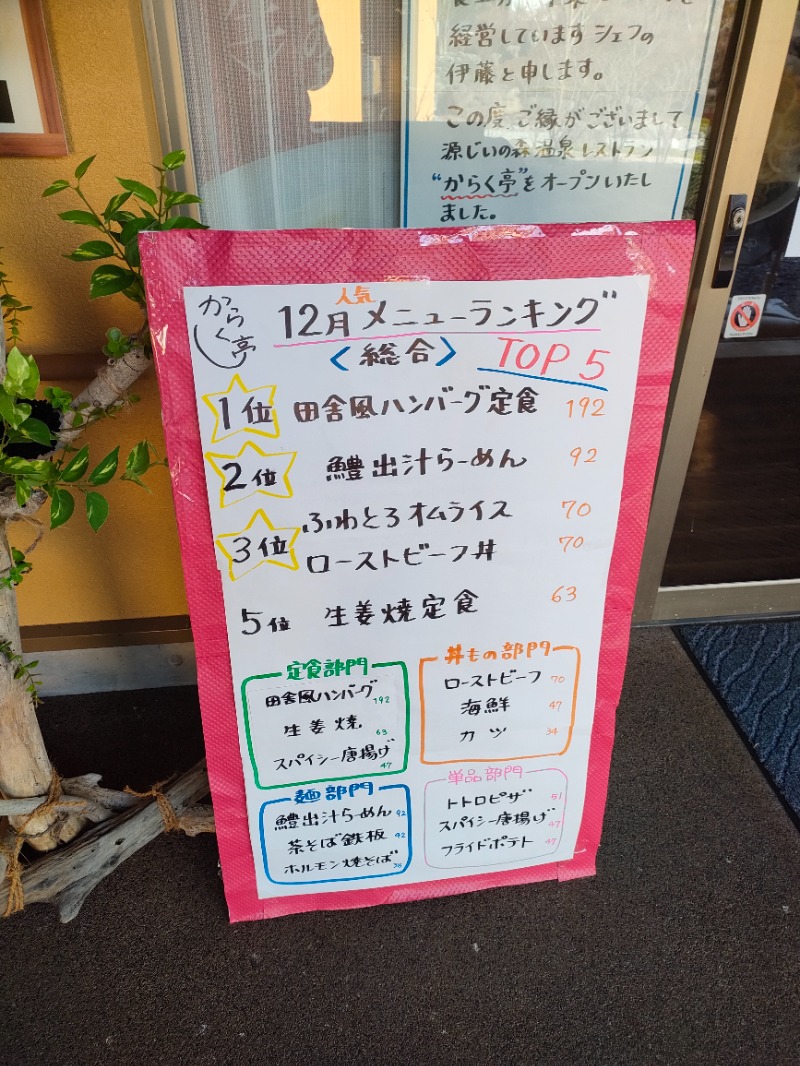 経営しています シェフの
伊藤と申します。
この度、ご縁がございまして
源じいの森温泉レストラン
"からく亭"をオープンいたし
ました。
からく亭
人気
12月 メニューランキング
〈総合〉 TOP 5
1位 田舎風ハンバーグ定食 192
2位 鱧出汁らーめん 92
3位 ふわとろオムライス 70
ローストビーフ丼 70
5位 生姜焼定食 63
定食部門
田舎風ハンバーグ 192
生姜焼 63
スパイシー唐揚げ 47
丼もの部門
ローストビーフ 70
海鮮 47
カツ 34
麺部門
鱧出汁らーめん 92
茶そば鉄板 42
ホルモン焼そば 38
単品部門
トトロピザ 51
スパイシー唐揚げ 47
フライドポテト 47